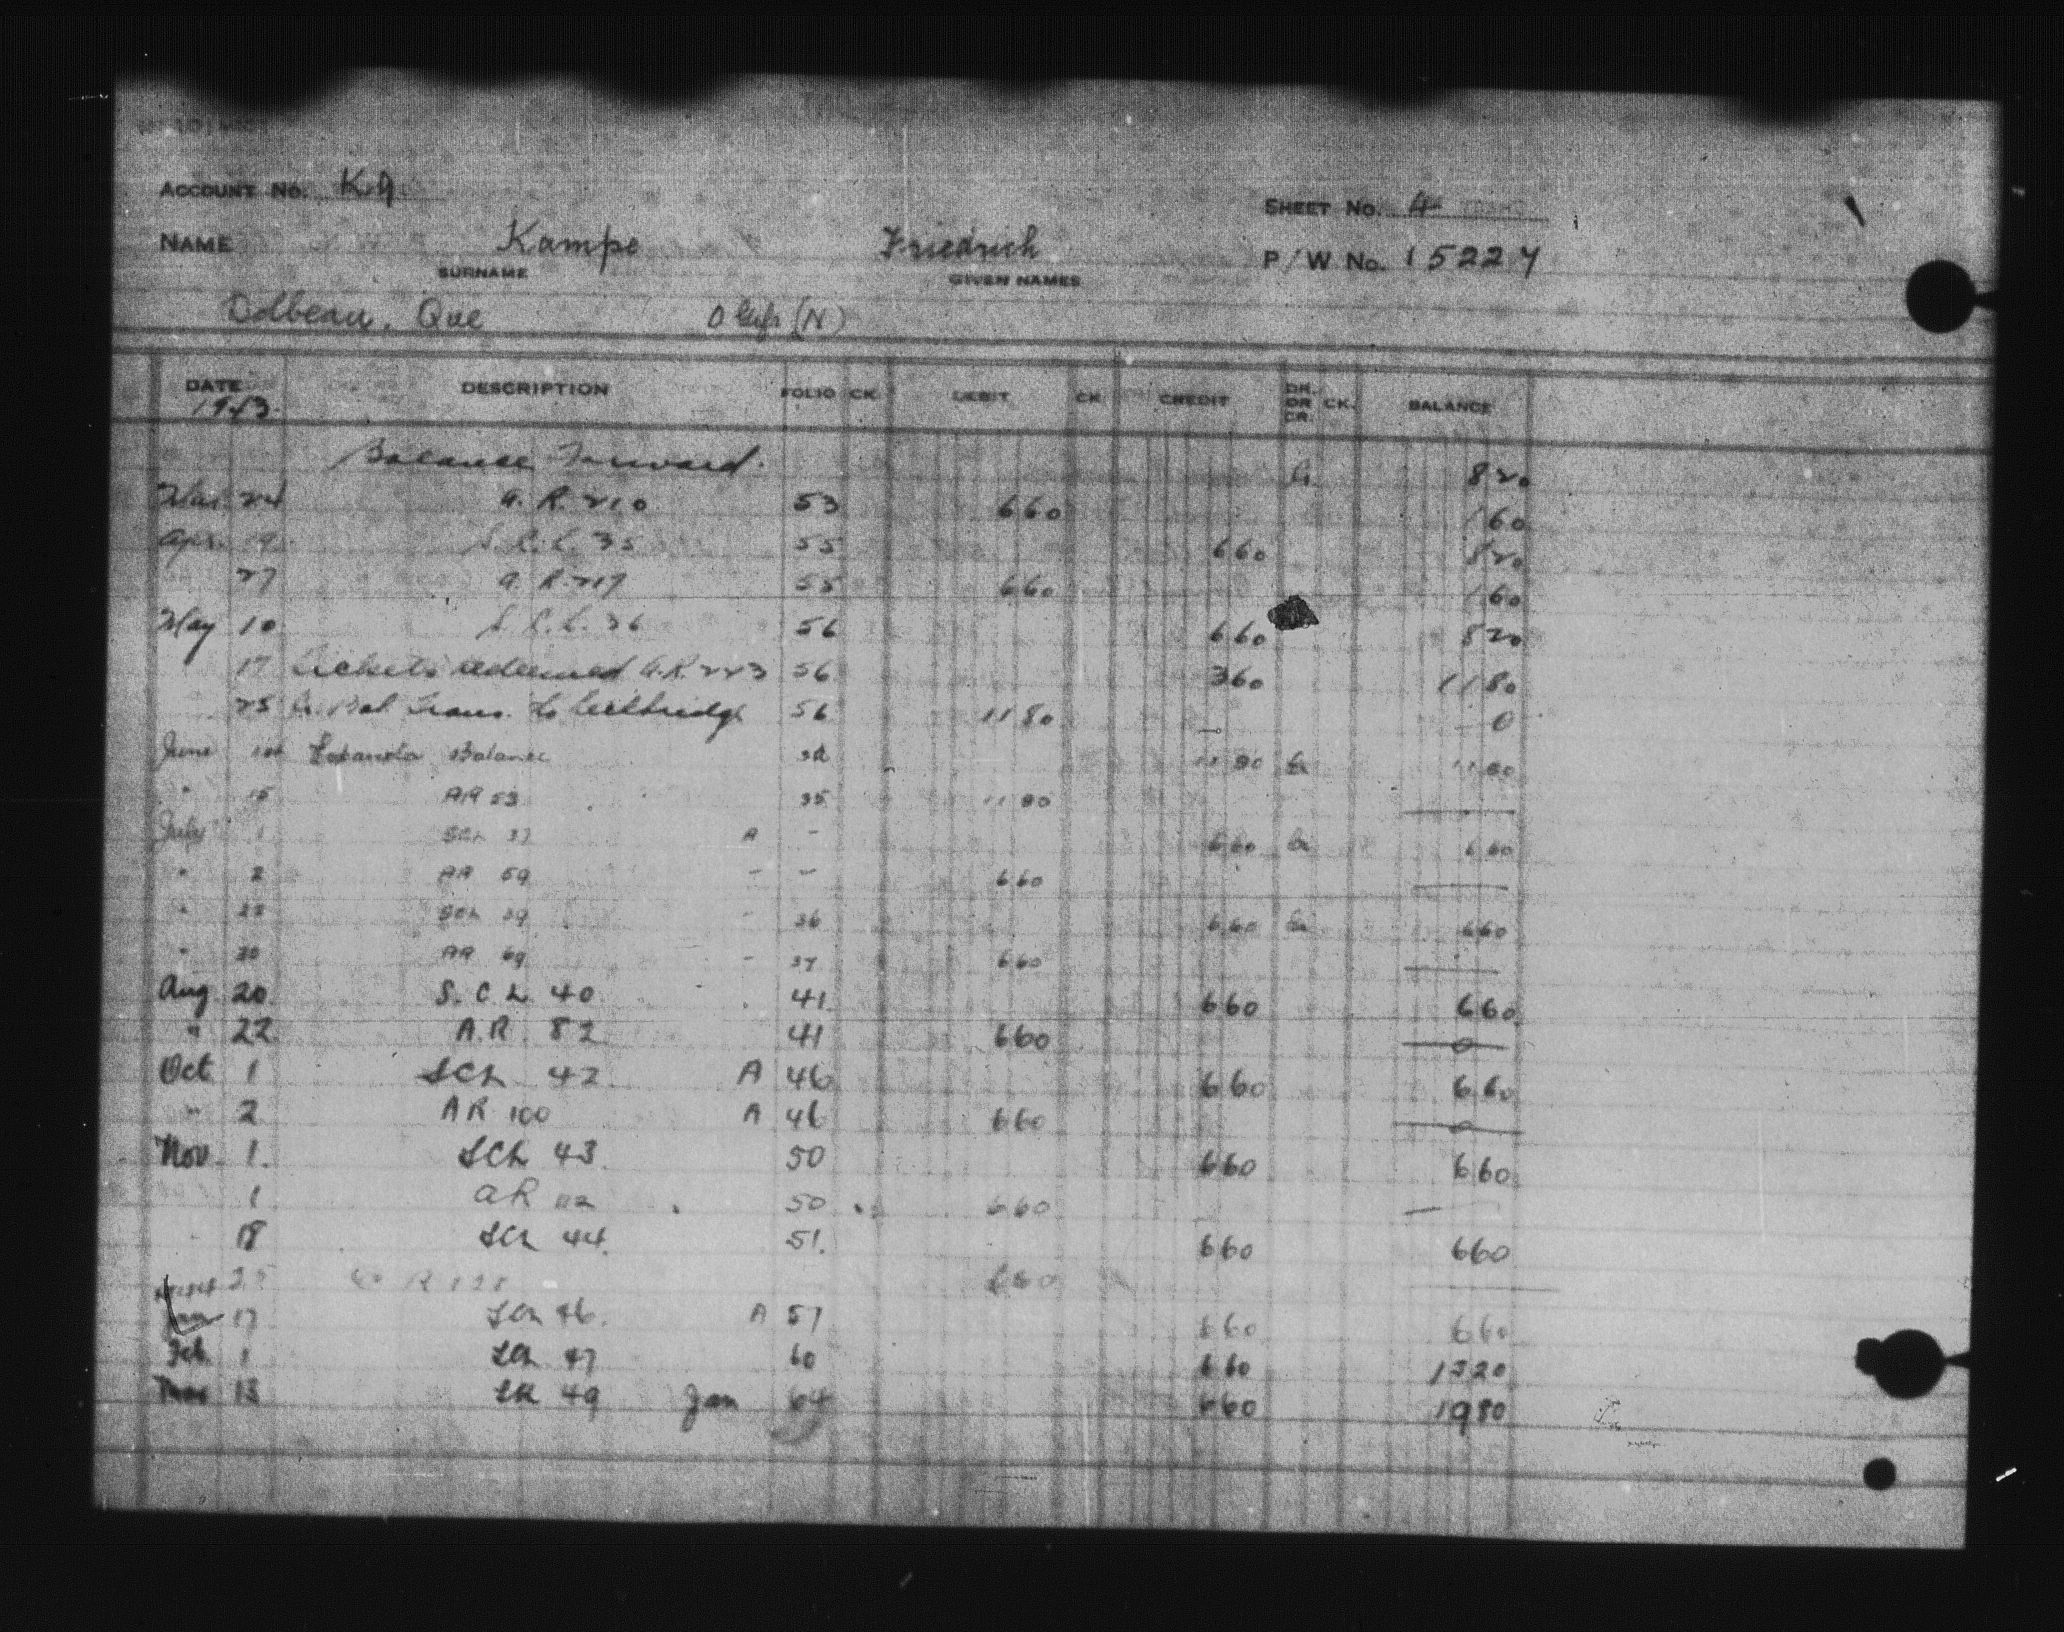 ACCOUNT No. K.9
SHEET No. 4
NAME Kampe Friedrich P/W No. 15227
SURNAME GIVEN NAMES
Dolbeau, Que (N)
DATE DESCRIPTION FOLIO CK DEBIT CK CREDIT DR. OR CR. CK. BALANCE
1943
Balance Forward. 820
Mar. 24 A.R. 210 53 660 160
Apr. 19 S.C.L. 35 55 660 820
27 A.R. 217 55 660 160
May 10 S.C.L. 36 56 660 820
17 Tickets redeemed A.R. 223 56 360 1180
25 Cr. Bal Trans. to Lethbridge 56 1180 0
June Espanola Balance 32 1180 Cr 1180
" 15 AR 53 35 1180
July 1 SCL 37 A - 660 Cr 660
" 2 AR 59 - - 660
" SCL 39 - 36 660 Cr 660
" 30 AR 69 - 37 660
Aug. 20 S.C.L. 40 41 660 660
" 22 A.R. 82 41 660 0
Oct 1 SCL 42 A 46 660 660
" 2 AR 100 A 46 660 0
Nov. 1. SCL 43 50 660 660
1 AR 112 50 660 —
18 SCL 44. 51. 660 660
25 R 121 660
Jan 17 SCL 46. A 57 660 660
Feb 1 SCL 47 60 660 1320
Mar 13 SCL 49 Jan 64 660 1980